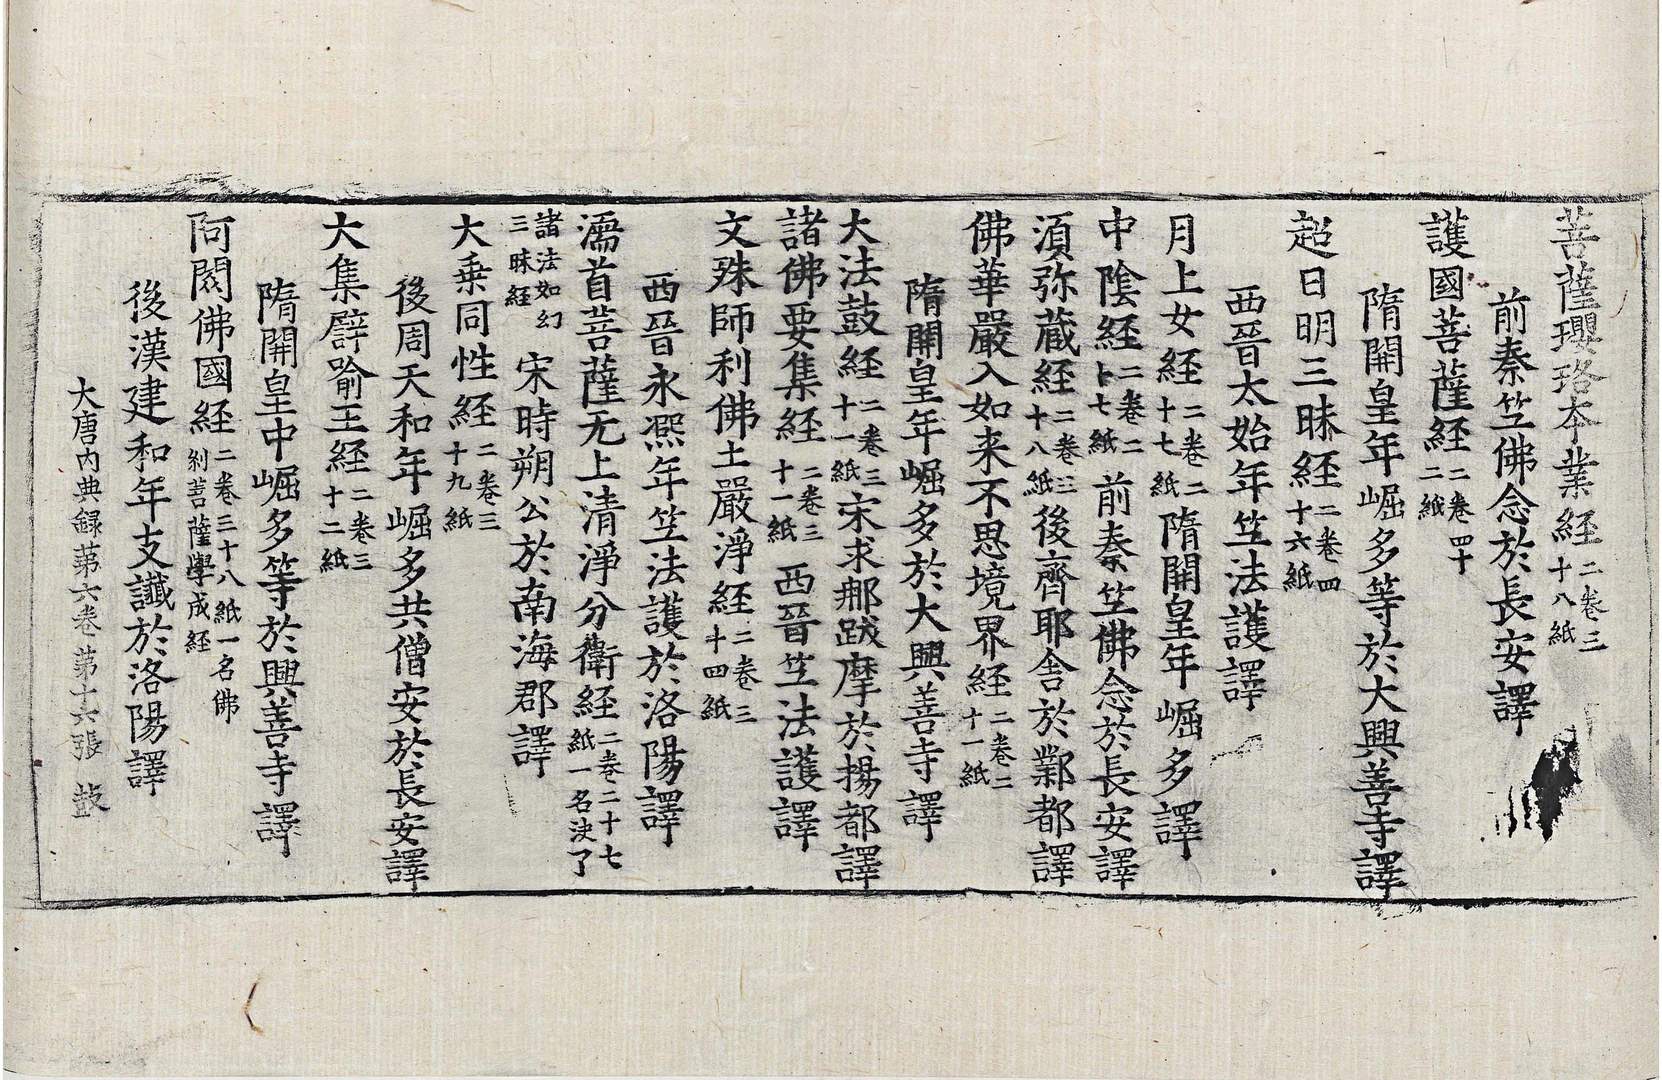 菩薩瓔珞本業経二卷三十八紙
前秦竺佛念於長安譯
護國菩薩経二卷四十二紙
隋開皇年崛多等於大興善寺譯
超日明三昧経二卷四十六紙
西晉太始年竺法護譯
月上女経二卷二十七紙隋開皇年崛多譯
中陰経二卷二十七紙前秦竺佛念於長安譯
湏弥蔵経二卷三十八紙後齊耶舎於鄴都譯
佛華嚴入如来不思境界経二卷二十一紙
隋開皇年崛多於大興善寺譯
大法鼓経二卷三十一紙宋求那跋摩於揚都譯
諸佛要集経二卷三十一紙西晉竺法護譯
文殊師利佛土嚴淨経二卷三十四紙
西晉永熈年竺法護於洛陽譯
濡首菩薩无上清淨分衛経二卷二十七紙一名決了
諸法如幻三昧経宋時朔公於南海郡譯
大乗同性経二卷三十九紙
後周天和年崛多共僧安於長安譯
大集譬喻王経二卷三十二紙
隋開皇中崛多等於興善寺譯
阿閦佛國経二卷三十八紙一名佛刹菩薩學成経
後漢建和年支讖於洛陽譯
大唐内典録苐六卷苐十六張 鼓